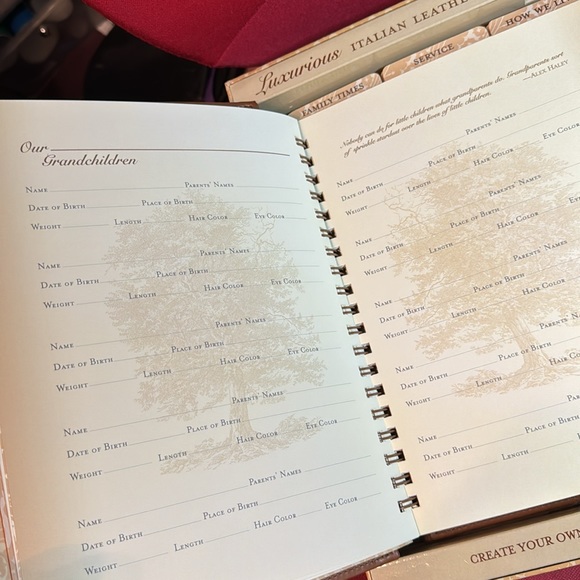 Luxurious ITALIAN LEATHE
FAMILY TIMES
SERVICE
HOW WE LI
Our
Grandchildren
NAME PARENTS' NAMES
DATE OF BIRTH PLACE OF BIRTH
WEIGHT LENGTH HAIR COLOR EYE COLOR
NAME PARENTS' NAMES
DATE OF BIRTH PLACE OF BIRTH
WEIGHT LENGTH HAIR COLOR EYE COLOR
NAME PARENTS' NAMES
DATE OF BIRTH PLACE OF BIRTH
WEIGHT LENGTH HAIR COLOR EYE COLOR
NAME PARENTS' NAMES
DATE OF BIRTH PLACE OF BIRTH
WEIGHT LENGTH HAIR COLOR EYE COLOR
NAME PARENTS' NAMES
DATE OF BIRTH PLACE OF BIRTH
WEIGHT LENGTH HAIR COLOR EYE COLOR
Nobody can do for little children what grandparents do. Grandparents sort
of sprinkle stardust over the lives of little children.
—ALEX HALEY
NAME PARENTS' NAMES
DATE OF BIRTH PLACE OF BIRTH
WEIGHT LENGTH HAIR COLOR EYE COLOR
NAME PARENTS' NAMES
DATE OF BIRTH PLACE OF BIRTH
WEIGHT LENGTH HAIR COLOR EYE
NAME PARENTS' NAMES
DATE OF BIRTH PLACE OF BIRTH
WEIGHT LENGTH HAIR COLOR
NAME PARENTS' N
DATE OF BIRTH PLACE OF BIRTH
WEIGHT LENGTH HAIR COLOR
NAME PARENTS'
DATE OF BIRTH PLACE OF BIRTH
WEIGHT LENGTH HA
CREATE YOUR OWN